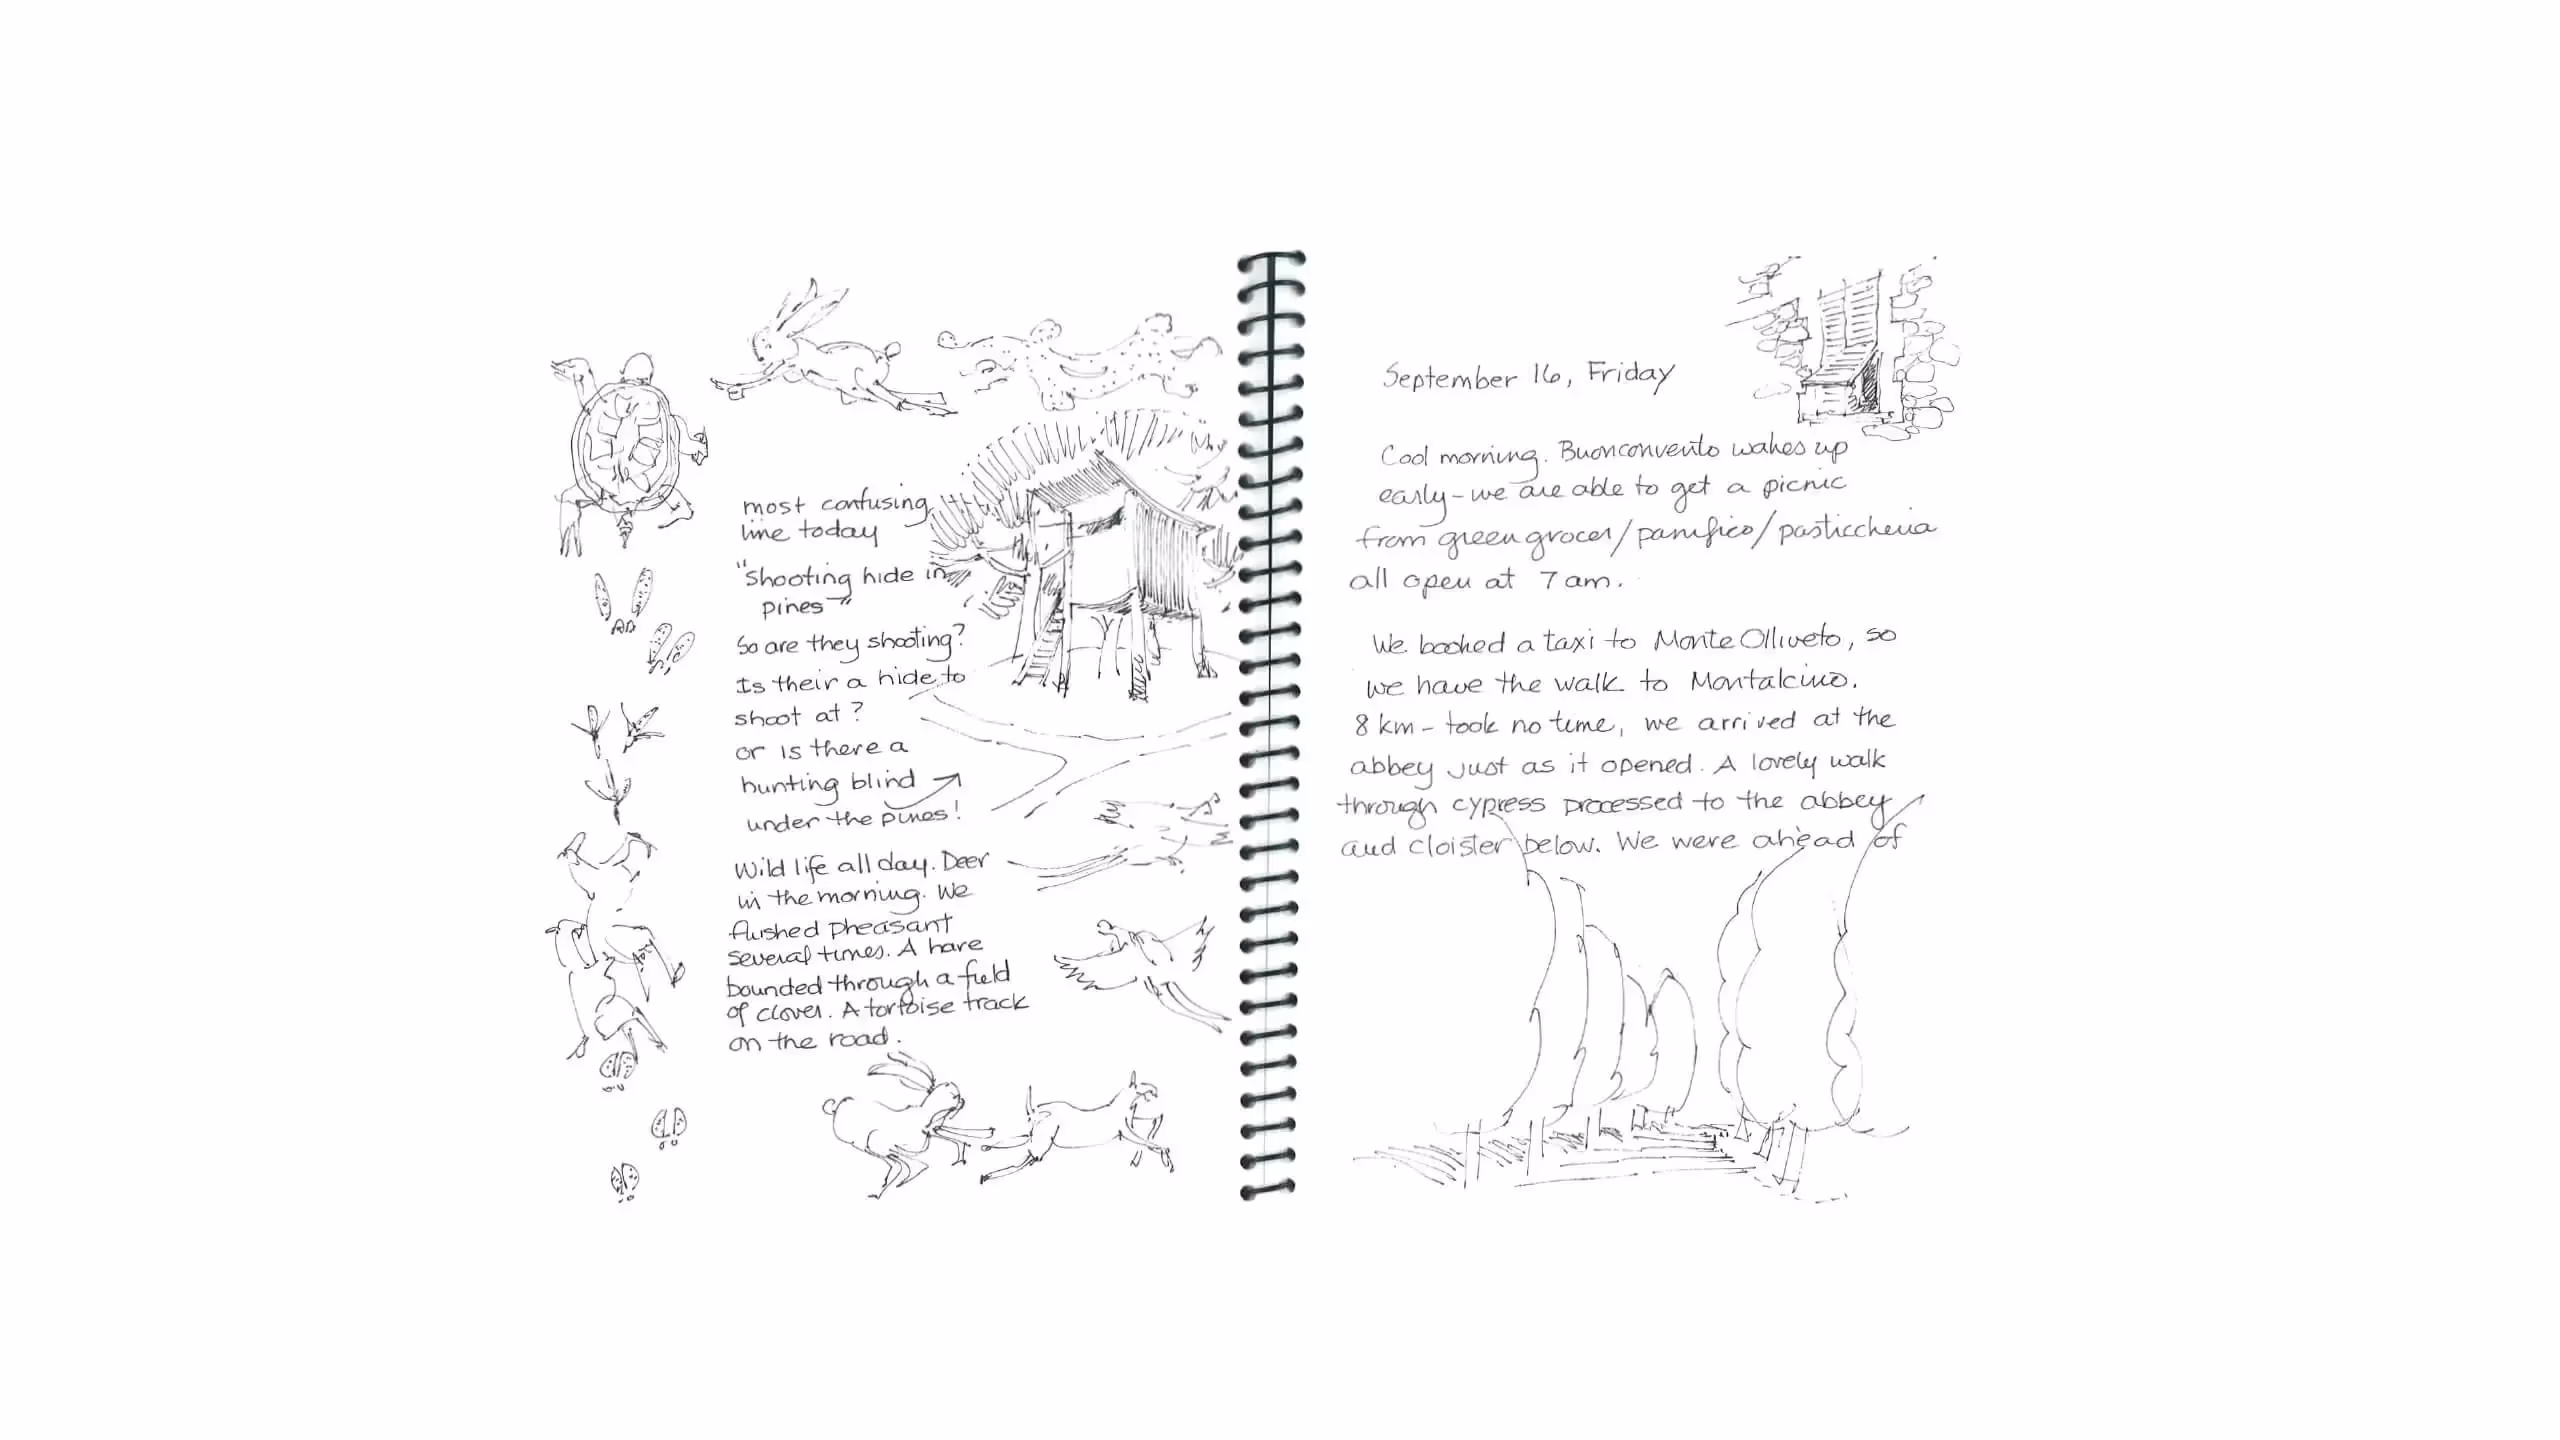 most confusing
line today
"shooting hide in
pines"
So are they shooting?
Is their a hide to
shoot at?
or is there a
hunting blind
under the pines!
Wild life all day. Deer
in the morning. We
flushed pheasant
several times. A hare
bounded through a field
of clover. A tortoise track
on the road.
September 16, Friday
Cool morning. Buonconvento wakes up
early - we are able to get a picnic
from green grocer/panifico/pasticcheria
all open at 7 am.
We booked a taxi to Monte Olliveto, so
we have the walk to Montalcino.
8 km - took no time, we arrived at the
abbey just as it opened. A lovely walk
through cypress processed to the abbey
and cloister below. We were ahead of